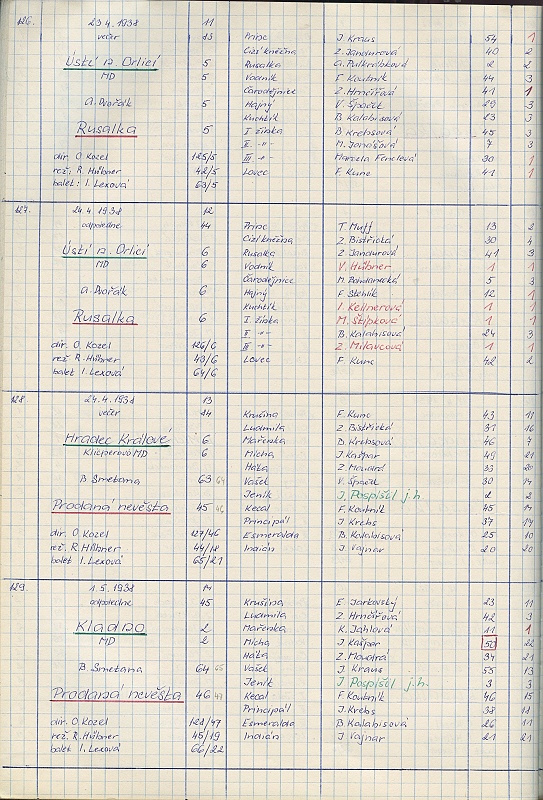 126. 23.4.1938 11 Princ J. Kraus 54 1
večer 13 Cizí kněžna Z. Jandurová 40 2
Ústí n. Orlicí 5 Rusalka A. Pulkrábková 2 2
MD 5 Vodník F. Koutník 44 3
Čarodějnice Z. Hrnčířová 41 1
A. Dvořák 5 Hajný V. Špaček 29 3
Kuchtík B. Kalabisová 23 3
Rusalka 5 I. žínka B. Krebsová 45 3
II. -"- M. Janošová 7 3
dir. O. Kozel 125/5 III -"- Marcela Fenclová 30 1
rež. R. Hübner 42/5 Lovec F. Kunc 41 1
balet: I. Lexová 63/5
127. 24.4.1938 12
odpoledne 14 Princ T. Muff 13 2
Cizí kněžna Z. Bistřická 30 4
Ústí n. Orlicí 6 Rusalka Z. Jandurová 41 3
MD 6 Vodník V. Hübner 1 1
Čarodějnice M. 5 3
A. Dvořák 6 Hajný F. Stehlík 12 1
Kuchtík I. Kellnerová 1 1
Rusalka 6 I. žínka M. Štípková 1 1
II -"- B. Kalabisová 24 3
dir. O. Kozel 126/6 III -"- Z. Milavcová 1 1
rež R. Hübner 43/6 Lovec F. Kunc 42 2
balet I. Lexová 64/6
128 24.4.1938 13
večer 14 Krušina F. Kunc 43 11
Ludmila Z. Bistřická 31 16
Hradec Králové 6 Mařenka B. Krebsová 46 7
Klicperovo MD 6 Mícha J. Kašpar 49 21
Háta Z. Moudrá 33 20
B Smetana 63 64 Vašek V. Špaček 30 14
Jeník J. Pospíšil j.h. 2 2
Prodaná nevěsta 45 46 Kecal F. Koutník 45 14
Principál J Krebs 37 17
dir. O Kozel 127/46 Esmeralda B. Kalabisová 25 10
rež. R. Hübner 44/18 Indián J. Vajnar 20 20
balet I. Lexová 65/21
129. 1.5.1938 14
odpoledne 45 Krušina E. Jarkovský 23 11
Ludmila Z. Hrnčířová 42 3
Kladno 2 Mařenka K. Jahlová 11 1
MD 2 Mícha J Kašpar 50 22
Háta Z. Moudrá 34 21
B. Smetana 64 65 Vašek J. Kraus 55 13
Jeník J Pospíšil j.h. 3 3
Prodaná nevěsta 46 47 Kecal F. Koutník 46 15
Principál J. Krebs 38 18
dir. O. Kozel 128/47 Esmeralda B. Kalabisová 26 11
rež. R. Hübner 45/19 Indián J Vajnar 21 21
balet I. Lexová 66/22